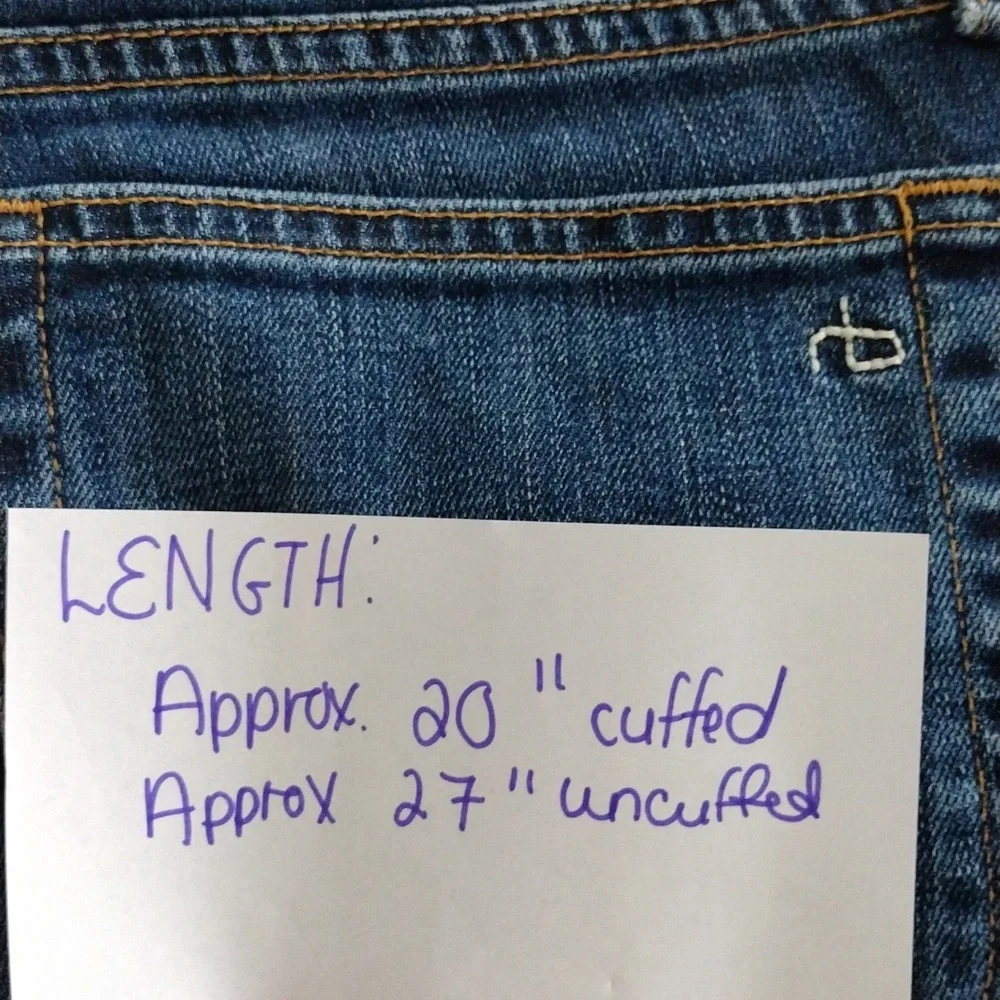 rb
LENGTH:
Approx. 20" cuffed
Approx 27" uncuffed